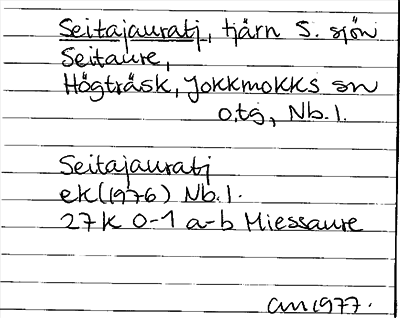 Seitajauratj, tjärn S. sjön
Seitaure,
Högträsk, Jokkmokks sn
o.tg, Nb.l.
Seitajauratj
ek(1976) Nb.l.
27K 0-1 a-b Miessaure
am 1977.